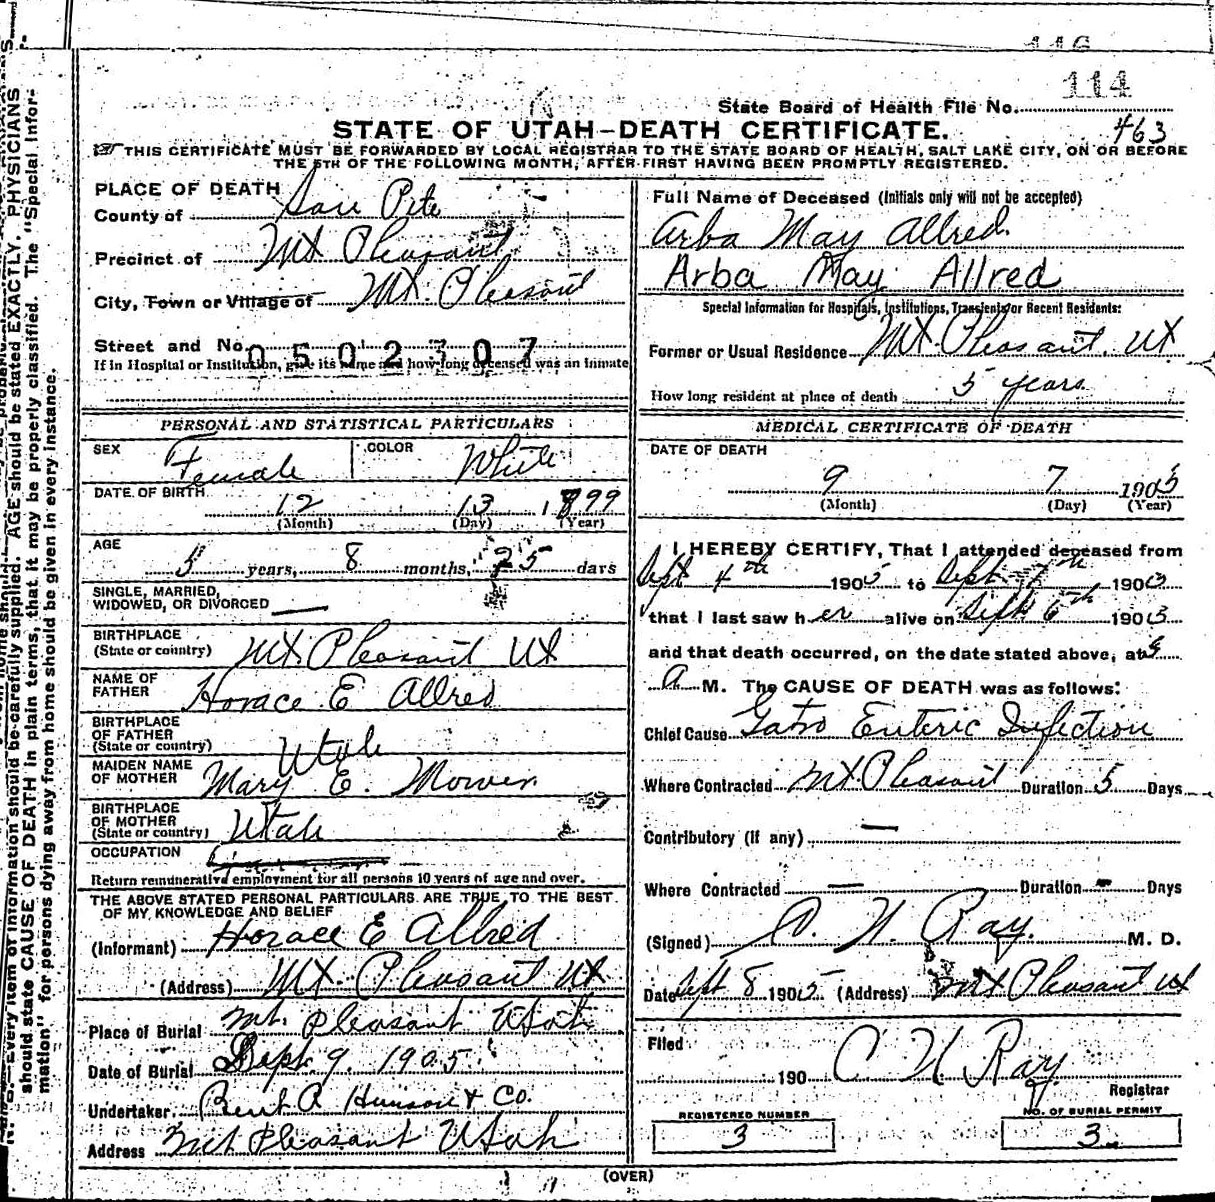 116
114
State Board of Health File No.
STATE OF UTAH–DEATH CERTIFICATE.
463
THIS CERTIFICATE MUST BE FORWARDED BY LOCAL REGISTRAR TO THE STATE BOARD OF HEALTH, SALT LAKE CITY, ON OR BEFORE
THE 5TH OF THE FOLLOWING MONTH, AFTER FIRST HAVING BEEN PROMPTLY REGISTERED.
PLACE OF DEATH
County of San Pete
Precinct of Mt Pleasant
City, Town or Village of Mt. Pleasant
Street and No.
0502307
If in Hospital or Institution, give its name and how long deceased was an inmate
PERSONAL AND STATISTICAL PARTICULARS
SEX Female COLOR White
DATE OF BIRTH
12 13 1899
(Month) (Day) (Year)
AGE
5 years, 8 months, 25 days
SINGLE, MARRIED,
WIDOWED, OR DIVORCED —
BIRTHPLACE
(State or country) Mt Pleasant Ut
NAME OF
FATHER Horace E Allred
BIRTHPLACE
OF FATHER
(State or country) Utah
MAIDEN NAME
OF MOTHER Mary E. Mower
BIRTHPLACE
OF MOTHER
(State or country) Utah
OCCUPATION
Return remunerative employment for all persons 10 years of age and over.
THE ABOVE STATED PERSONAL PARTICULARS ARE TRUE TO THE BEST
OF MY KNOWLEDGE AND BELIEF
(Informant) Horace E Allred
(Address) Mt. Pleasant Ut
Place of Burial Mt. Pleasant Utah
Date of Burial Sept. 9. 1905.
Undertaker & Co.
Address Mt Pleasant Utah
Full Name of Deceased (Initials only will not be accepted)
Arba May Allred.
Arba May Allred
Special Information for Hospitals, Institutions, Transients or Recent Residents:
Former or Usual Residence Mt Pleasant. Ut
How long resident at place of death 5 years
MEDICAL CERTIFICATE OF DEATH
DATE OF DEATH
9 7 1905
(Month) (Day) (Year)
I HEREBY CERTIFY, That I attended deceased from
Sept 4th 1905 to Sept 7th 1905
that I last saw her alive on Sept 6th 1905
and that death occurred, on the date stated above, at
A M. The CAUSE OF DEATH was as follows:
Chief Cause Gatro Enteric Infection
Where Contracted Mt. Pleasant Duration 5 Days
Contributory (if any) —
Where Contracted — Duration – Days
(Signed) Ray. M. D.
Date Sept 8 1905 (Address) Mt Pleasant Ut
Filed
190 Ray
Registrar
REGISTERED NUMBER
3
NO. OF BURIAL PERMIT
3
(OVER)
Every item of information should be carefully supplied. AGE should be stated EXACTLY. PHYSICIANS
should state CAUSE OF DEATH in plain terms, that it may be properly classified. The "Special Infor-
mation" for persons dying away from home should be given in every instance.